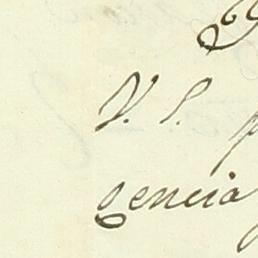 V. S.
gencia